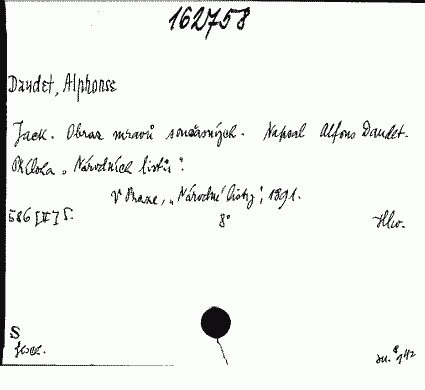 162758
Daudet, Alphonse
Jack. Obraz mravů současných. Napsal Alfons Daudet.
Příloha „Národních listů".
V Praze, „Národní listy", 1891.
586 [II] S. 8° Hlw.
S